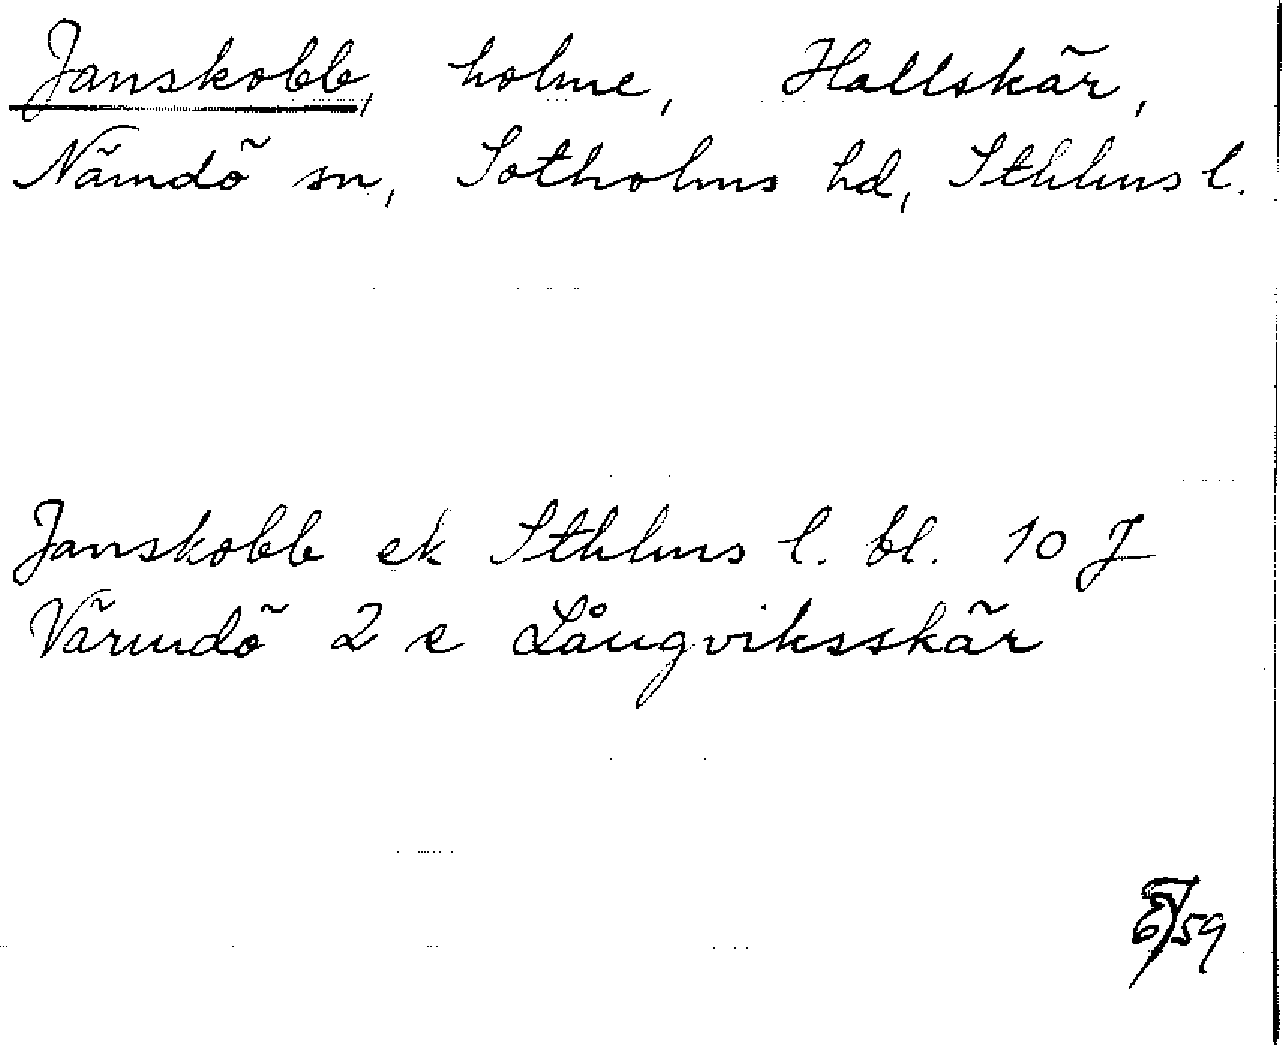 Janskobb, holme, Hallskär,
Nämdö sn, Sotholms hd, Sthlms l.
Janskobb ek Sthlms l. bl. 10 J
Värmdö 2 e Långviksskär
/59